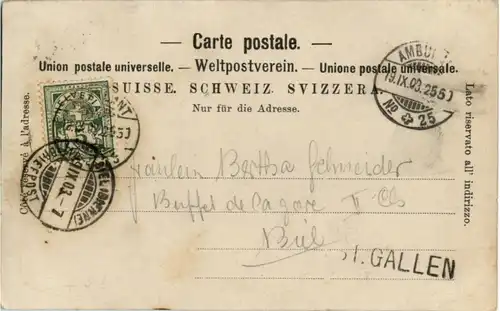 — Carte postale. —
Union postale universelle. — Weltpostverein. — Unione postale universale.
SUISSE. SCHWEIZ. SVIZZERA.
Nur für die Adresse.
à l'adresse.
Lato riservato all' indirizzo.
AMBUL
19.IX.03.25
No 25
BRIEFPOST
IX.03.-7
Fräulein Bertha Schneider
Buffet de la gare II Cls
Biel
ST. GALLEN